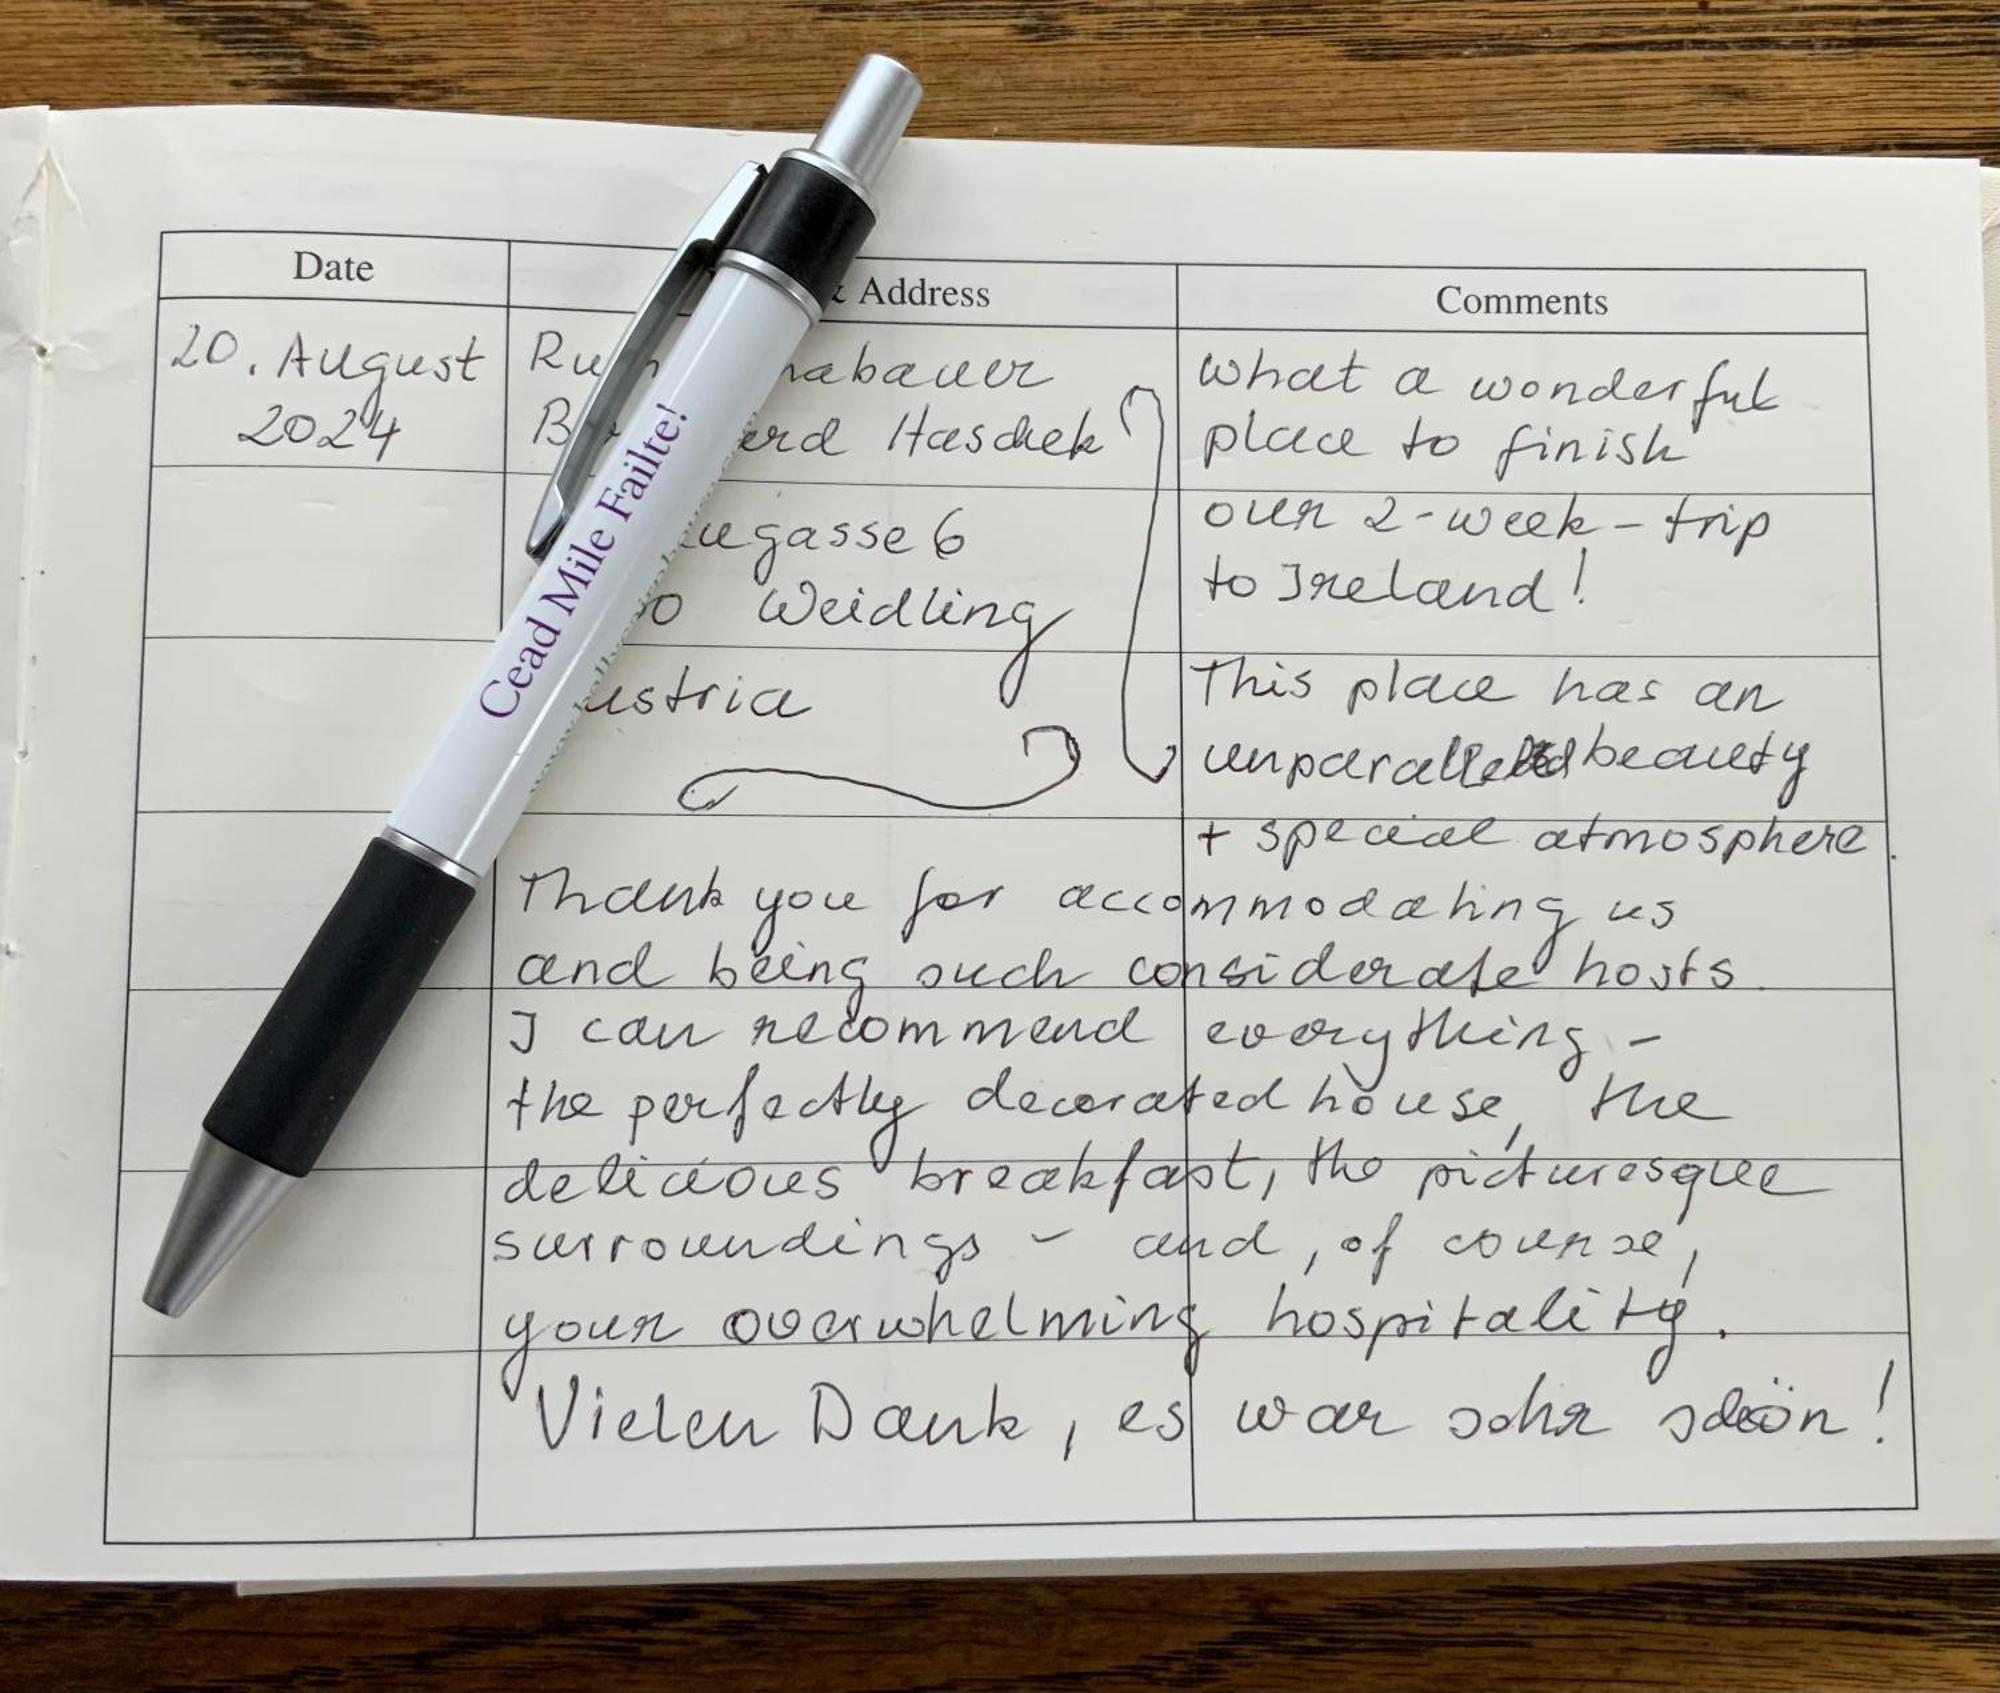 Date & Address Comments
20. August
2024
Haschek
gasse 6
Weidling
What a wonderful
place to finish
our 2-week-trip
to Ireland!
This place has an
unparalleled beauty
+ special atmosphere.
Thank you for accommodating us
and being such considerate hosts.
I can recommend everything -
the perfectly decorated house, the
delicious breakfast, the picturesque
surroundings - and, of course,
your overwhelming hospitality.
Vielen Dank, es war sehr schön!
Cead Mile Failte!